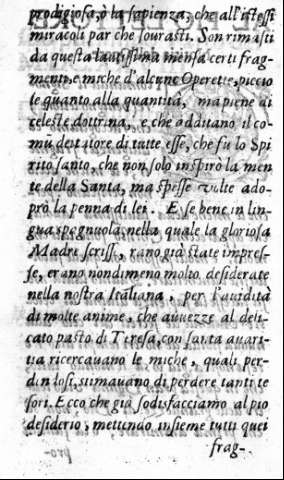 prodigiosa, ò la sapienza, che all'istessi
miracoli par che sourasti. Son rimasti
da questa santissima mensa certi frag-
menti, e miche d'alcune Operette, piccio
le quanto alla quantità, ma piene di
celeste dottrina, e che additano il co-
mũ dettatore di tutte esse, che fù lo Spi
rito santo, che non solo inspirò la men
te della Santa, ma spesse volte ado-
prò la penna di lei. E se bene in lin-
gua spagnuola, nella quale la gloriosa
Madre scrisse, erano già state impres-
se, erano nondimeno molto desiderate
nella nostra Italiana, per l'auidità
di molte anime, che auuezze al deli-
cato pasto di Teresa, con santa auari-
tia ricercauano le miche, quali per-
dendosi, stimauano di perdere tanti te
sori. Ecco che già sodisfacciamo al pio
desiderio, mettendo insieme tutti quei
frag-